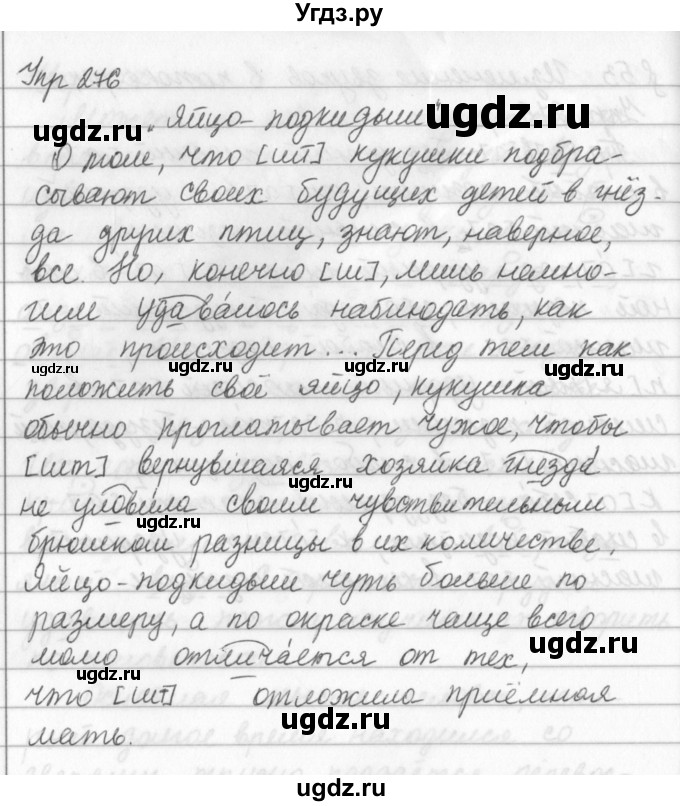 Угдз.ру
Упр 276
„Яйцо-подкидыш"
ugdz.ru
ugdz.ru
О том, что [шт] кукушки подбра-
сывают своих будущих детей в гнёз-
да других птиц, знают, наверное,
все. Но, конечно [ш], лишь немно-
гим удавалось наблюдать, как
это происходит... Перед тем как
ugdz.ru
ugdz.ru
ugdz.ru
положить своё яйцо, кукушка
обычно проглатывает чужое, чтобы
[шт] вернувшаяся хозяйка гнезда
ugdz.ru
не уловила своим чувствительным
ugdz.ru
брюшком разницы в их количестве.
Яйцо-подкидыш чуть больше по
размеру, а по окраске чаще всего
мало отличается от тех,
ugdz.ru
что [шт] отложила приёмная
ugdz.ru
мать.
ugdz.ru